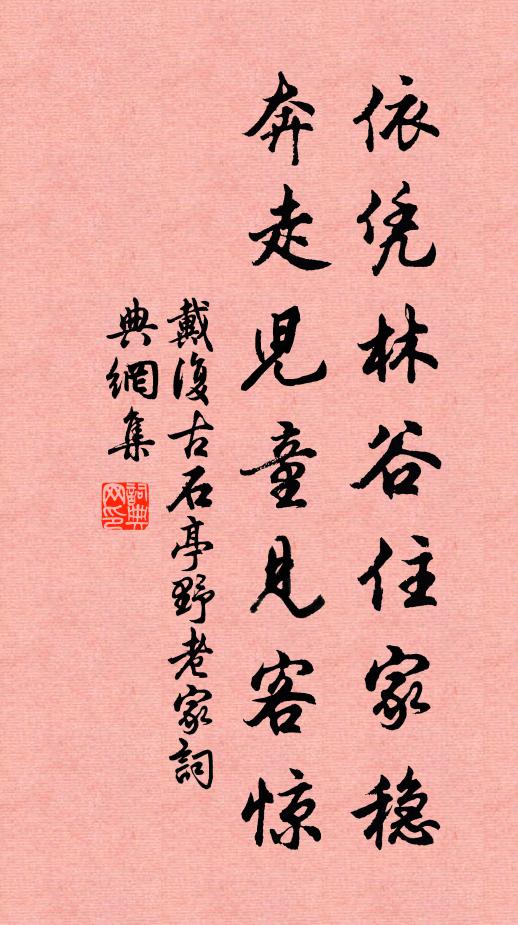 依凭林谷住家稳
奔走児童见客惊
戴復古石亭野老家詞
典網集
詞典网印